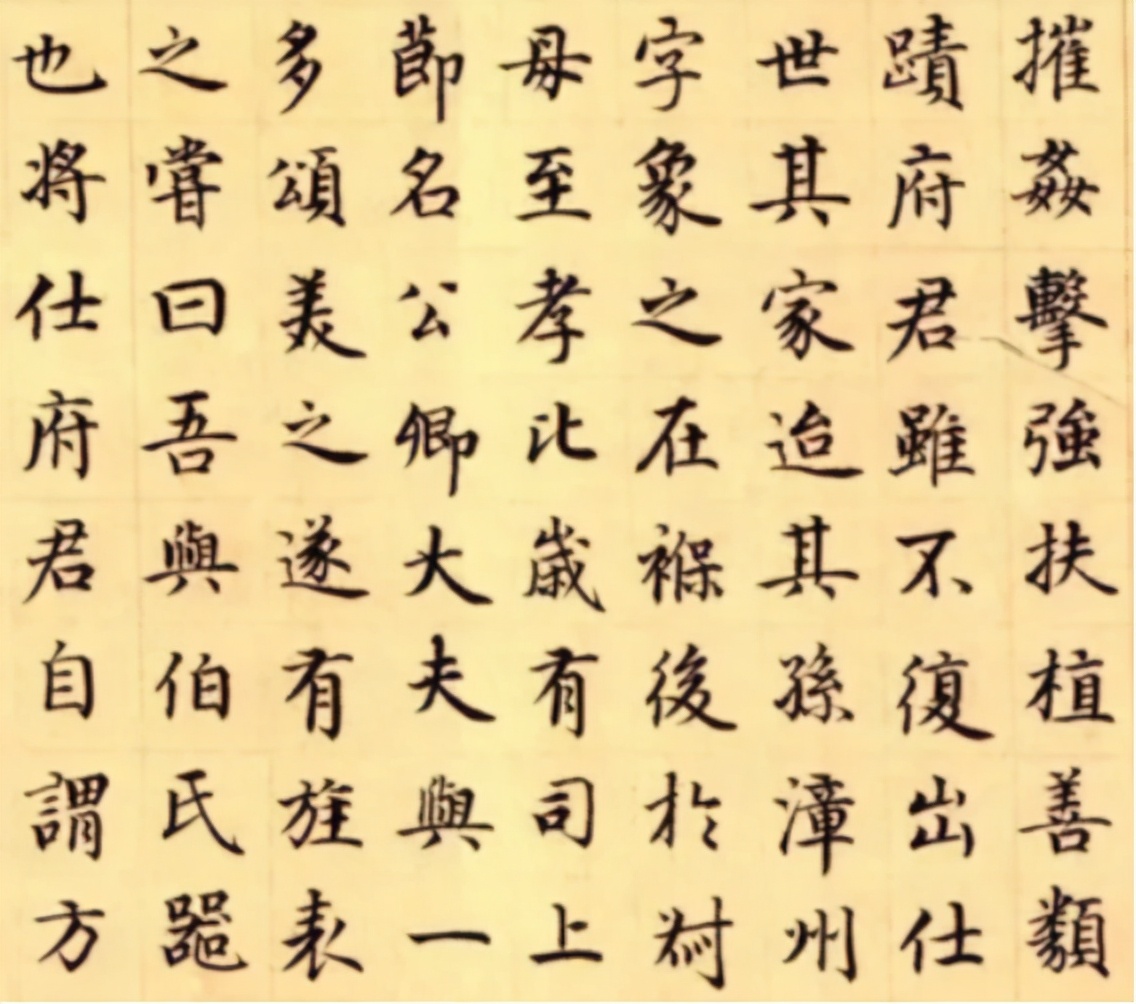 摧姦擊強扶植善類
蹟府君雖不復出仕
世其家迨其孫漳州
字象之在褓後於
母至孝比歲有司上
節名公卿大夫與一
多頌美之遂有旌表
之嘗曰吾與伯氏
也將仕府君自謂方